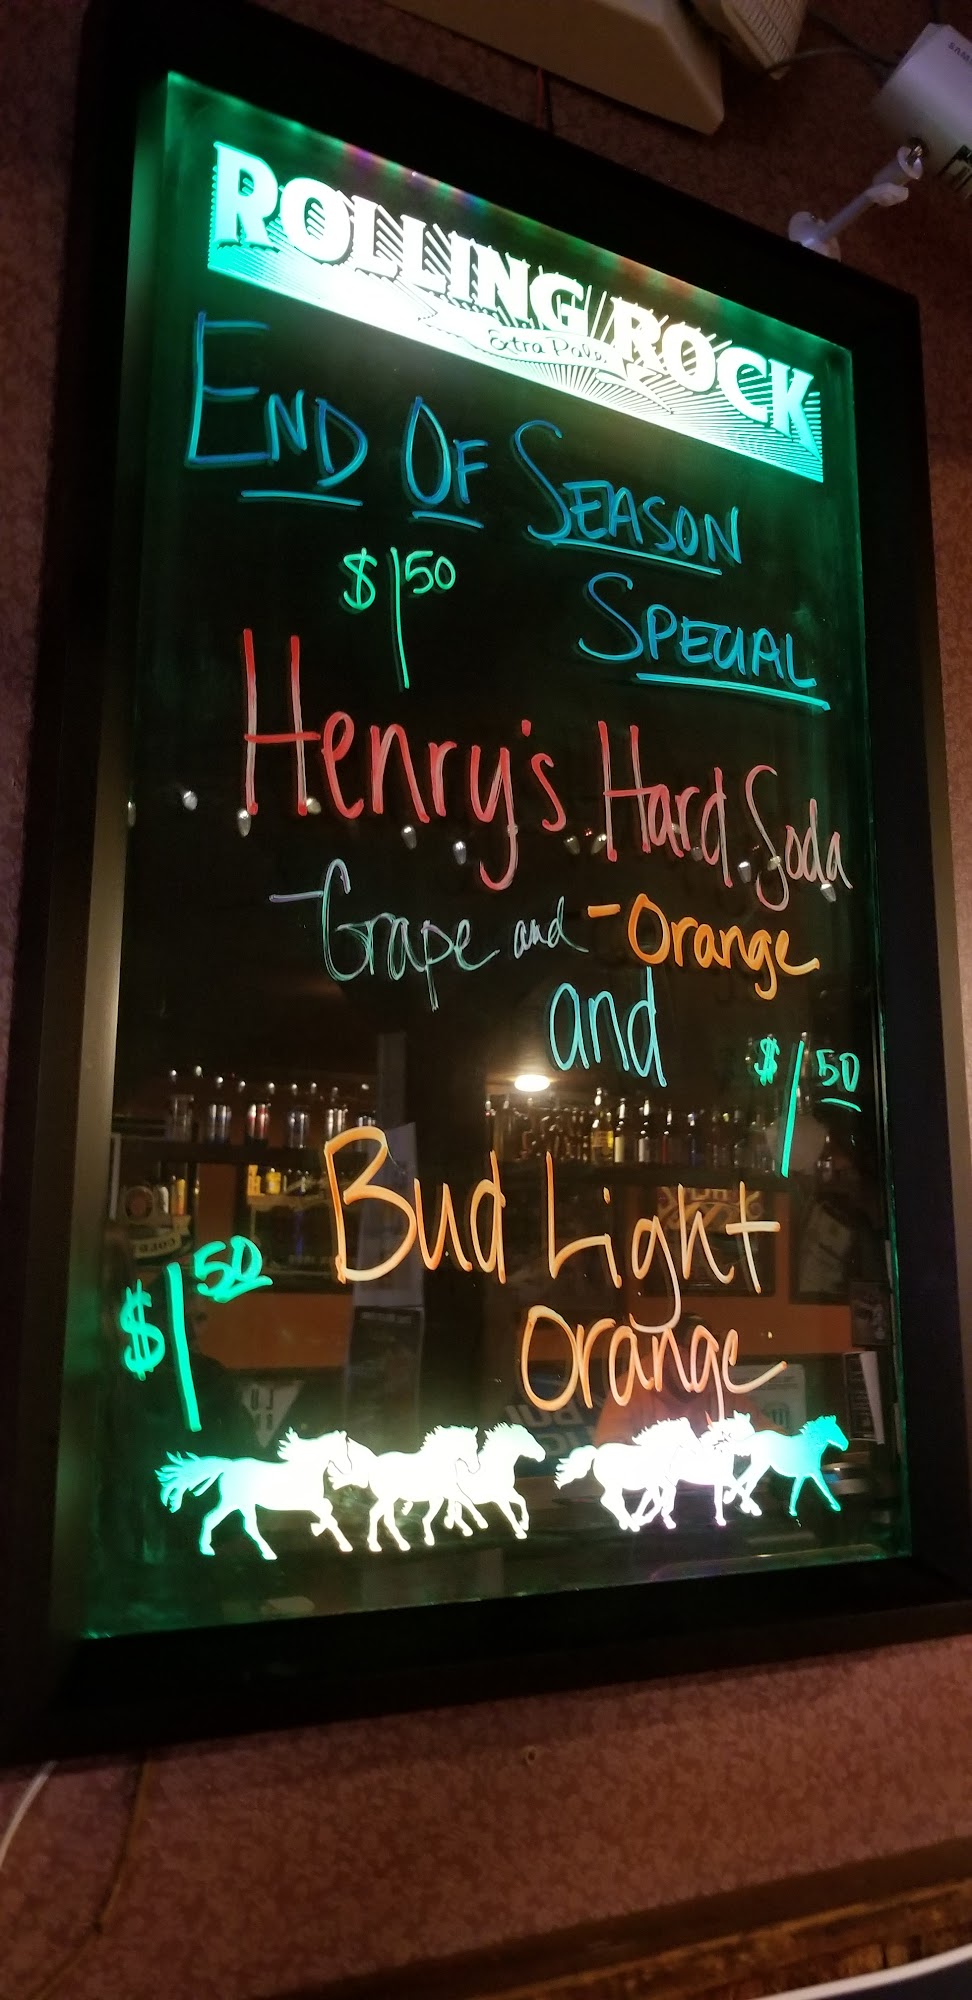 ROLLING ROCK
Extra Pale
END OF SEASON
SPECIAL
$1 50
Henry's Hard Soda
- Grape and - Orange
and
$1 50
Bud Light
Orange
$1 50